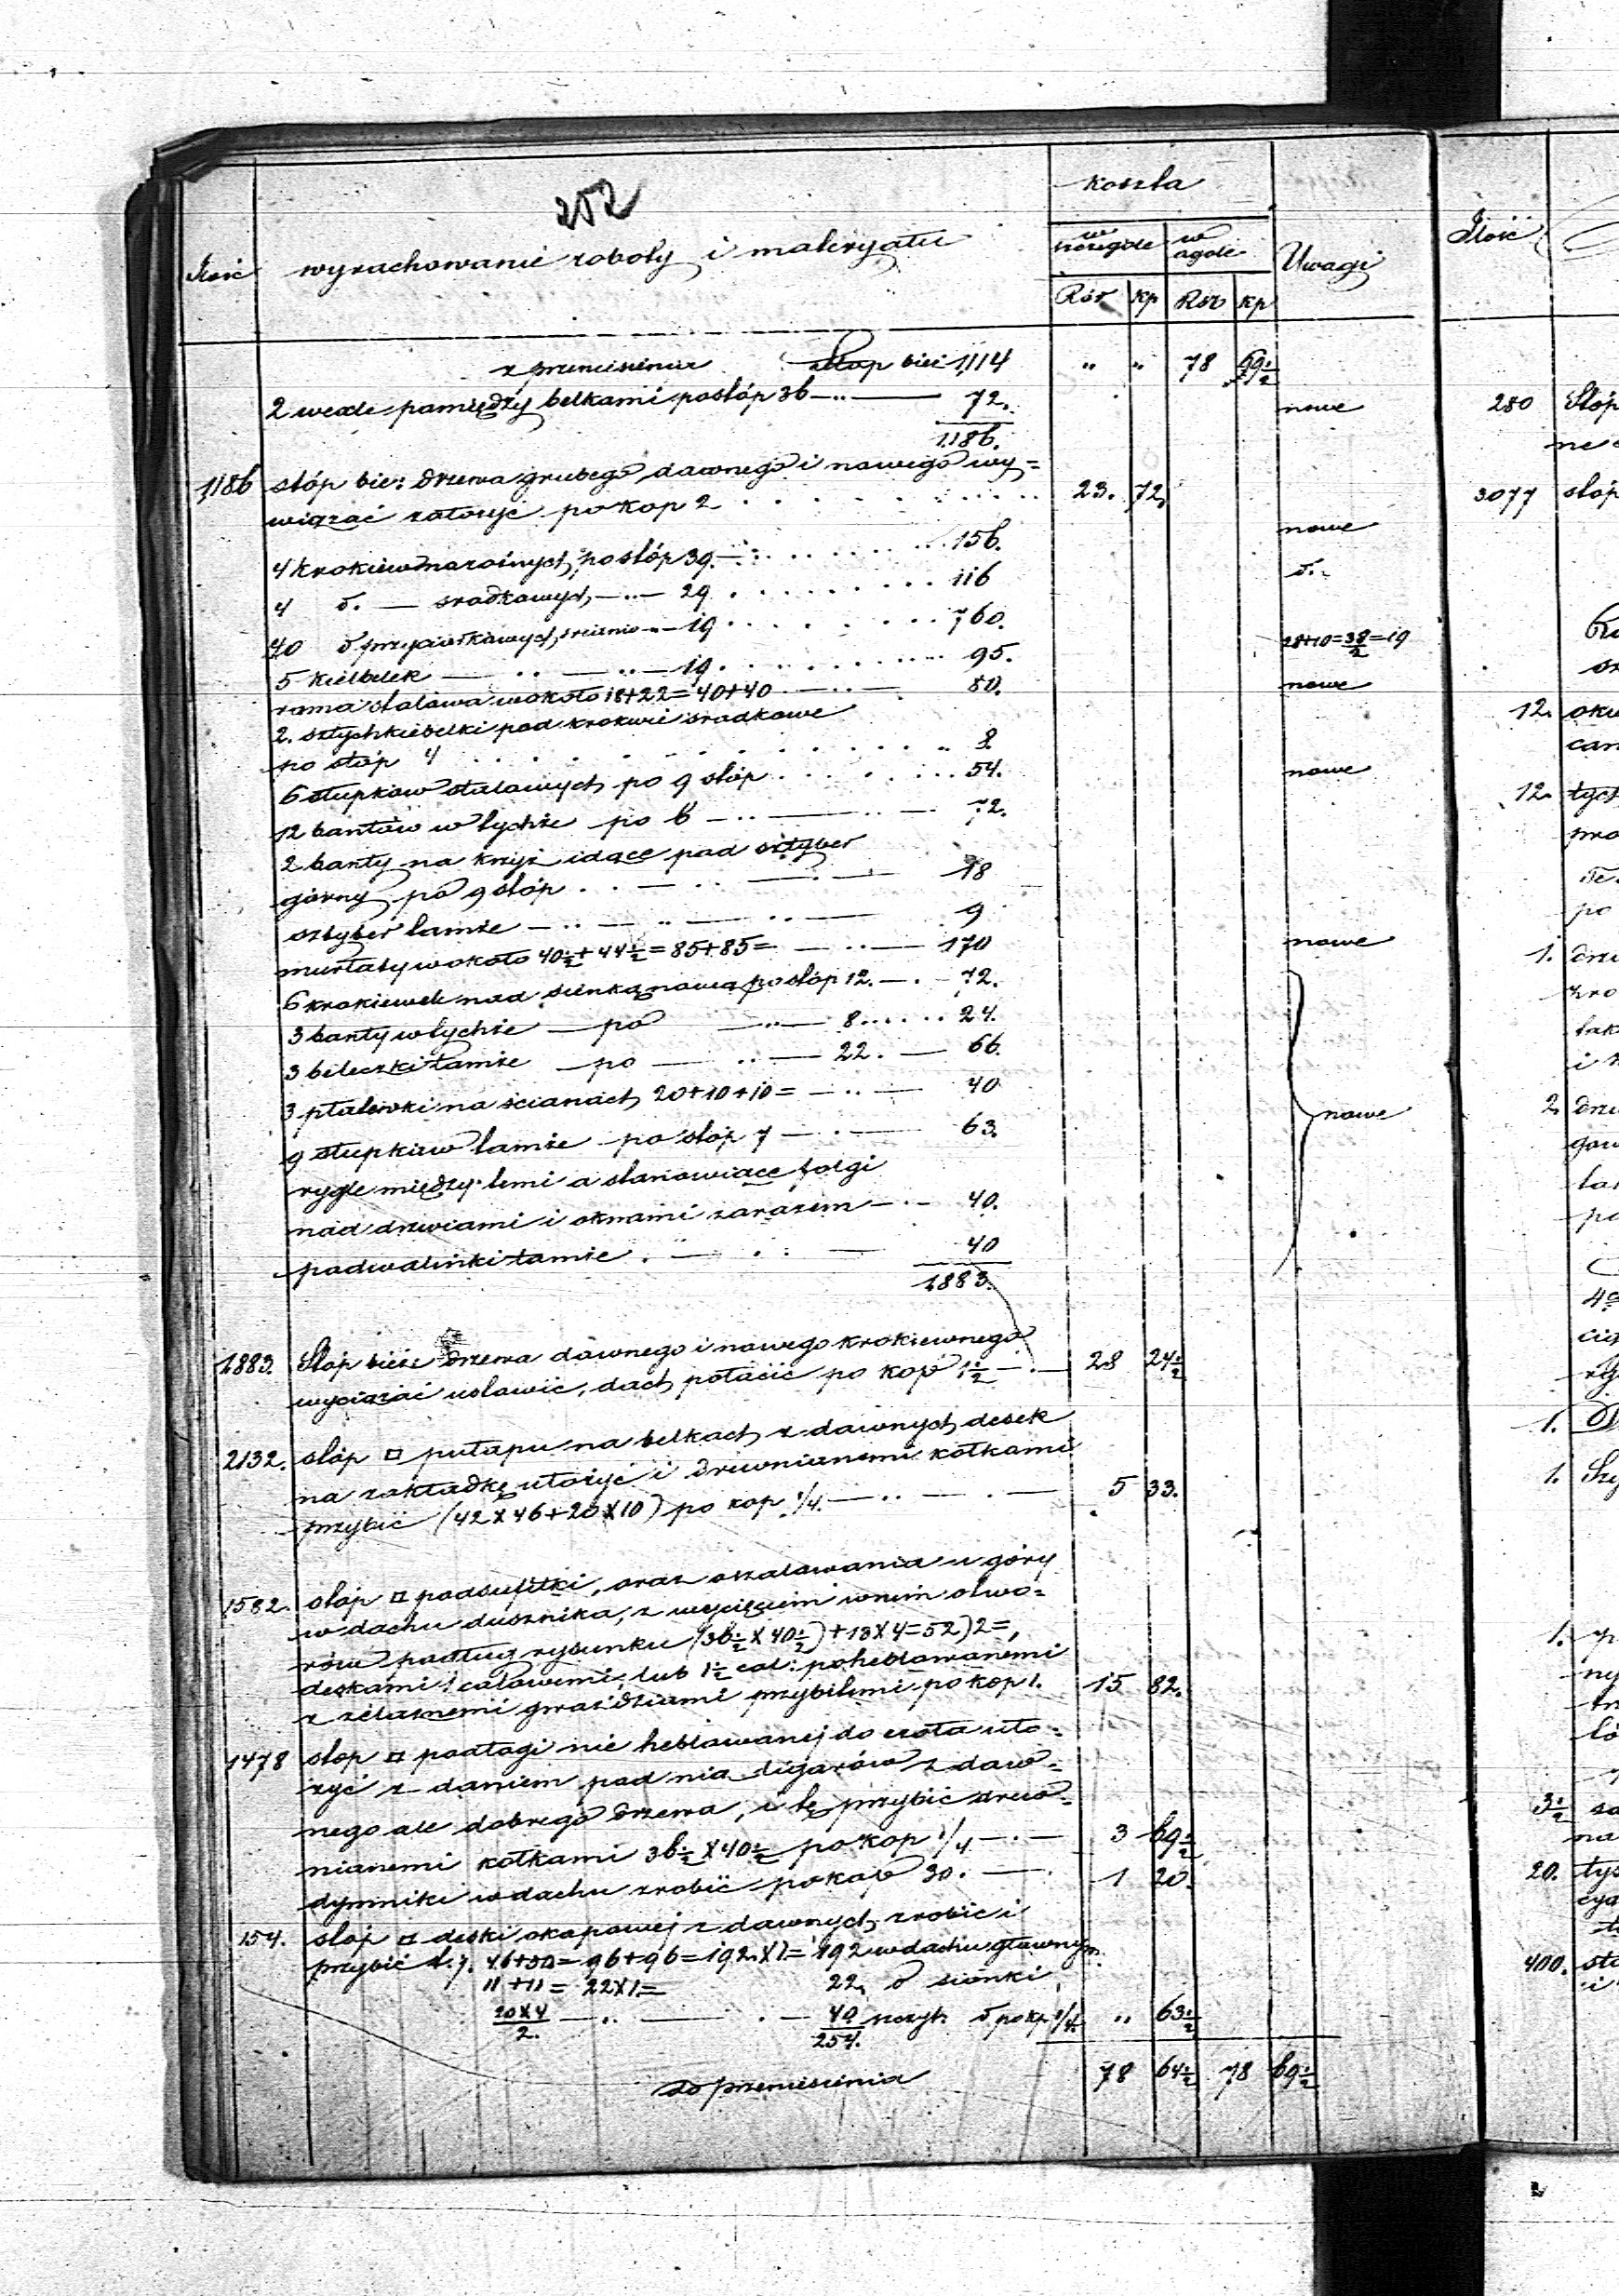 252
koszta
Ilość wyrachowanie roboty i materyału w szczególe w ogóle Uwagi
Rsr kp Rsr kp
z przeniesienia stóp bież 1114 " " 78 69½
2 wexle pomiędzy belkami po stóp 36 — 72. nowe
1186.
1186 stóp bież: drzewa grubego dawnego i nowego wy=
wiązać założyć po kop 2 . . . . 23. 72
4 krokiew narożnych po stóp 39. — 156. nowe
4 d. — środkowych — 29 . . . . 116 d.
40 d przyczółkowych, średnio — 19 . . . . 760. 28+10=38/2=19
5 kielbelek — 19. . . . . 95.
rama stolowa wokoło 18+22=40+40 — 80. nowe
2. sztychkiebelki pod krokwie środkowe
po stóp 4 . . . . 8
6 słupków stolowych po 9 stóp . . . . 54. nowe
12 bantów w tychże po 6 — 72.
2 banty na krzyż idące pod sztyber
górny po 9 stóp . . — 18
sztyber tamże — 9
murłaty wokoło 40½+44½=85+85= — 170 nowe
6 krokiewek nad sienką nową po stóp 12. — 72.
3 banty w tychże — po — 8 . . . . 24.
3 beleczki tamże — po — 22. — 66.
3 płatewki na ścianach 20+10+10= — 40
9 słupków tamże po stóp 7 — 63. nowe
rygle między temi a stanowiące folgi
nad drzwiami i oknami zarazem — 40.
podwalinki tamże . — 40
1883.
1883. Stóp bież: drzewa dawnego i nowego krokiewnego
wyciązać ustawić, dach połacić po kop 1½ — 28 24½
2132. stóp □ pułapu na belkach z dawnych desek
na zakładkę ułożyć i drewnianemi kołkami
przybić (42 X 46 + 20 X 10) po kop ¼. — 5 33.
1582. stóp □ podsufitki, oraz oszalowania u góry
w dachu dusznika, z wycięciem w nim otwo=
rów podług rysunku (36½ X 40½) + 13 X 4 = 52) 2 =,
deskami 1 calowemi, lub 1½ cal: poheblowanemi
z żelaznemi gwoździami przybitemi po kop 1. 15 82.
1478 stóp □ podłogi nie heblowanej do czoła uło=
żyć z daniem pod nią ligarów z daw=
nego ale dobrego drzewa, i tę przybić drew=
nianemi kołkami 36½ X 40½ po kop ¼ — 3 69½
dymniki w dachu zrobić po kop 30. — 1 20.
154. stóp □ deski okapowej z dawnych zrobić i
przybić t. j. 46+50=96+96=192 X 1= 192 w dachu głównym
11+11= 22 X 1= 22, d sionki
20 X 4/2. — 40 szczyt: d po kp ¼. " 63½
254.
do przeniesienia 78 64½ 78 69½
Ilość
280 Stóp
3077 stóp
12.
12. tych
1.
2
1.
1.
1.
3½
20.
400.